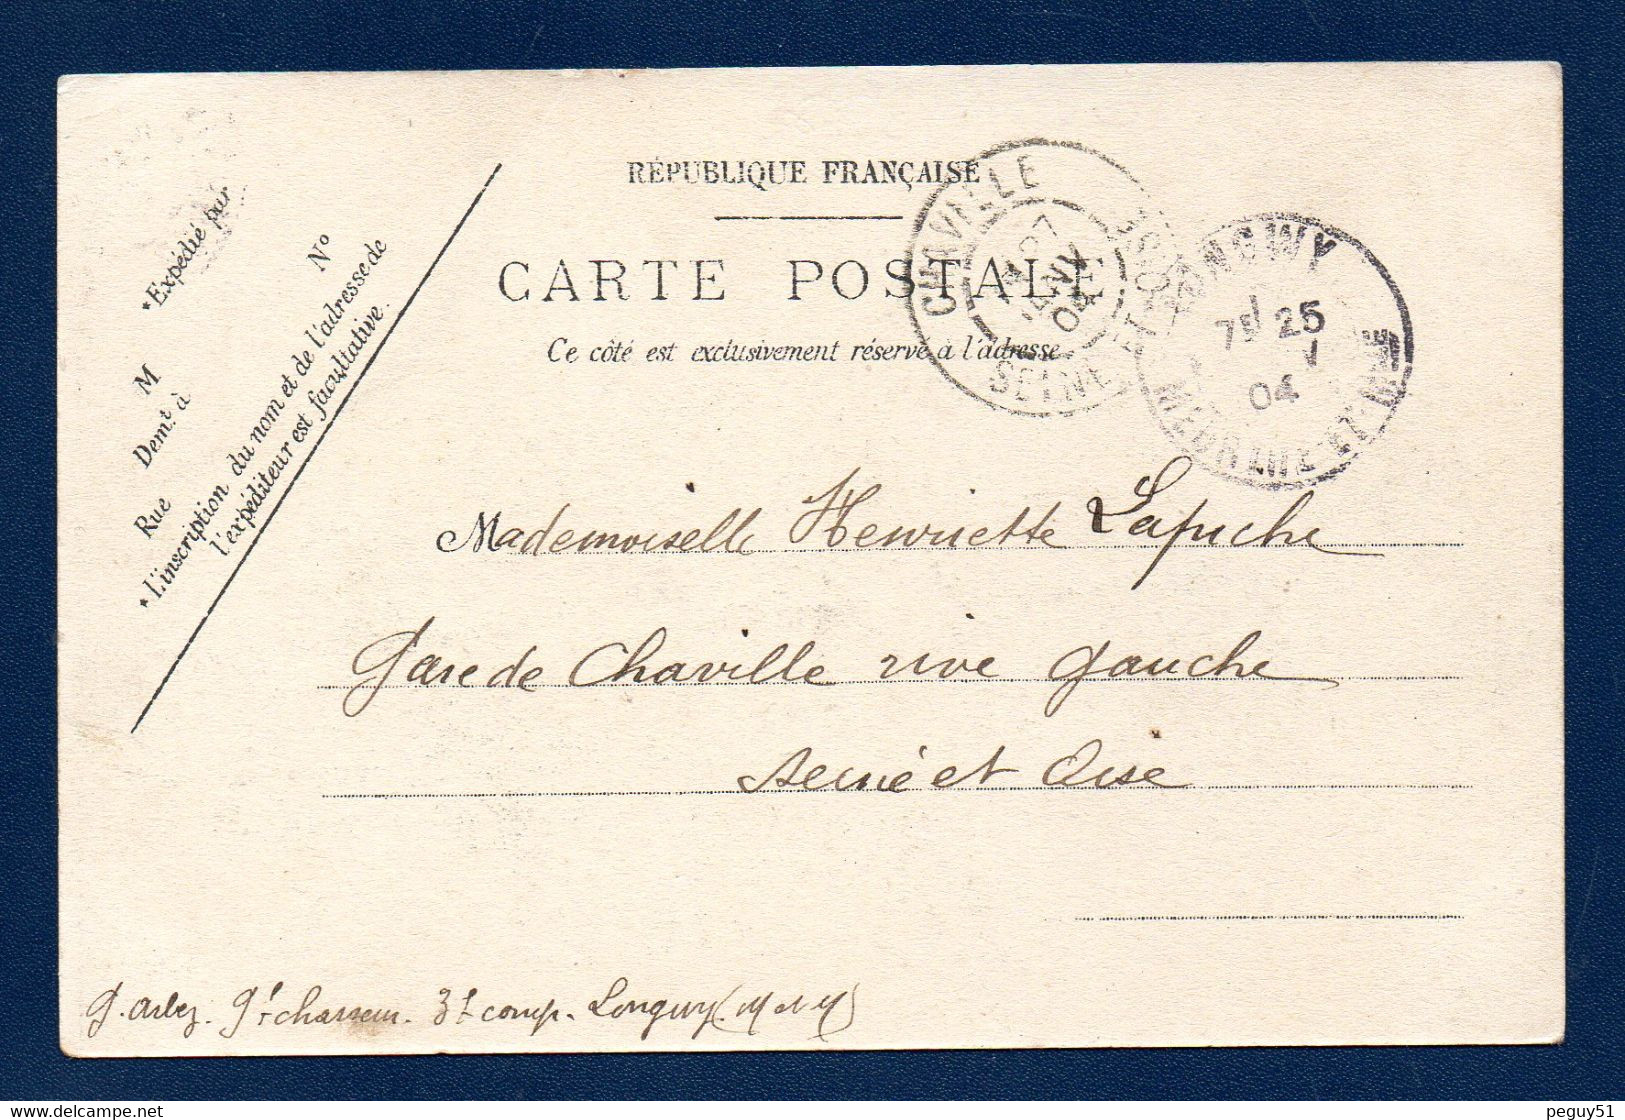 RÉPUBLIQUE FRANÇAISE
CARTE POSTALE
Ce côté est exclusivement réservé à l'adresse
*Expédié par
M N°
Demt à
Rue
*L'inscription du nom et de l'adresse de
l'expéditeur est facultative.
CHAVILLE
JANV
04
SEINE ET OISE
LONGWY
7E 25
1
04
MEURTHE ET
Mademoiselle Henriette Lapuche
Gare de Chaville rive gauche
Seine et Oise
G. Arbez. 9e chasseur. 3e comp. Longwy (M et M)
peguy51